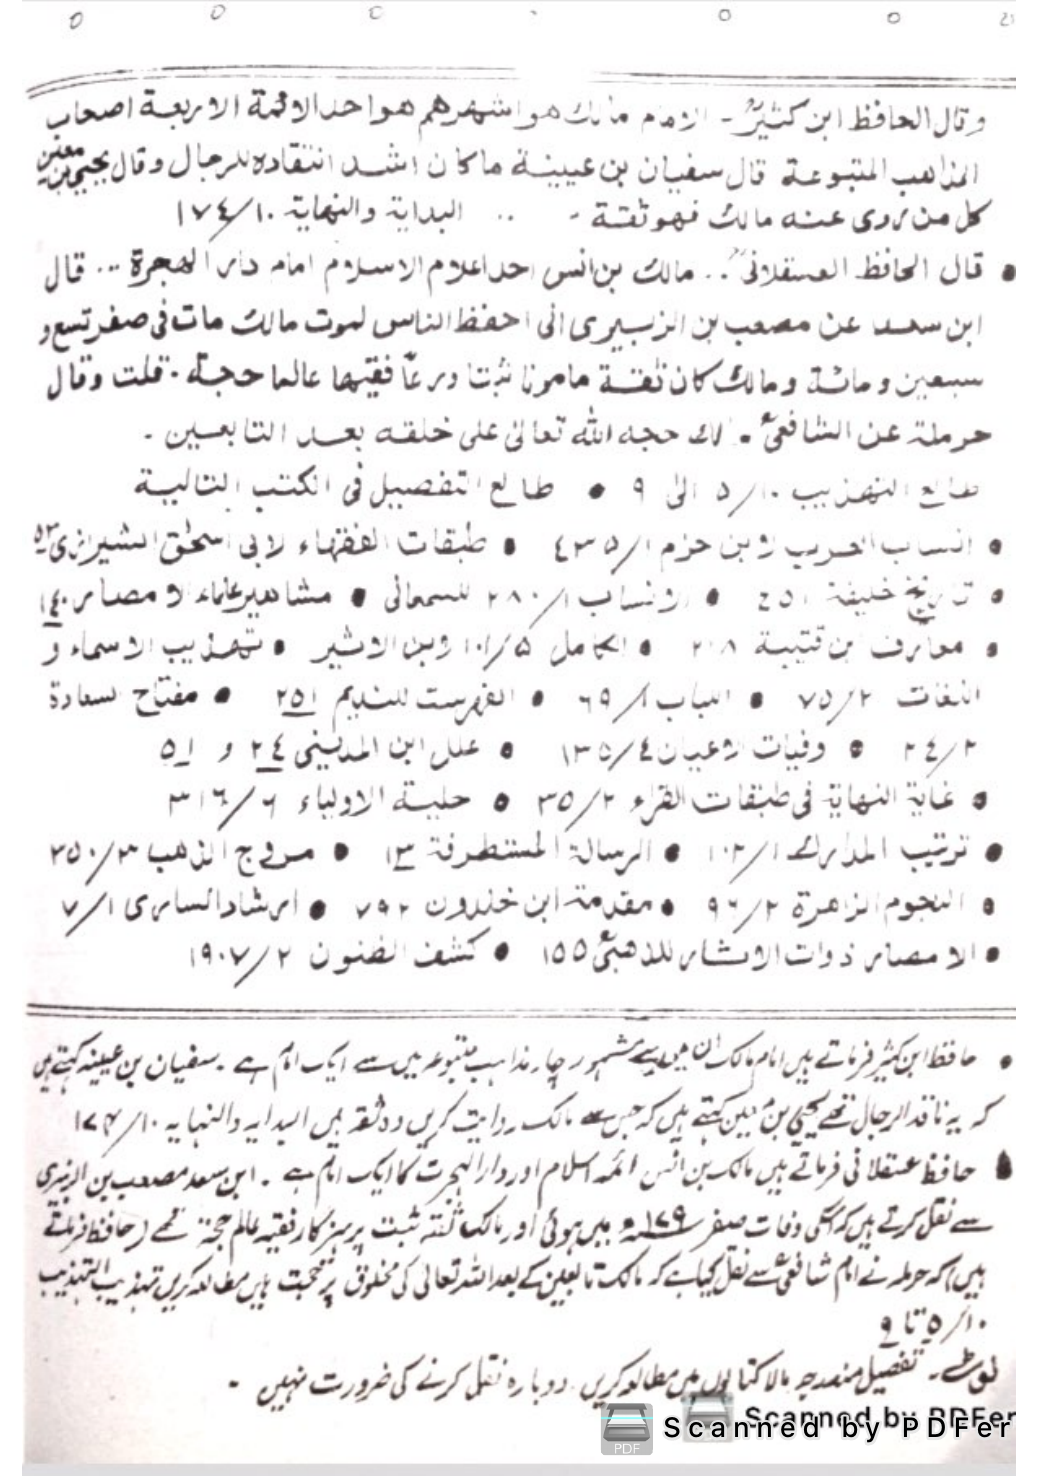 وقال الحافظ ابن كثيرؒ - الامام مالك هو اشهرهم هو احد الائمة الاربعة اصحاب
المذاهب المتبوعة قال سفيان بن عيينة ما كان اشد انتقاده للرجال وقال يحيى بن معين
كل من روى عنه مالك فهو ثقة - .. البداية والنهاية ۱۰/۱۷٤
● قال الحافظ العسقلانیؒ .. مالك بن انس احد اعلام الاسلام امام دار الهجرة ... قال
ابن سعد عن مصعب بن الزبیری انی احفظ الناس لموت مالك مات فی صفر تسع و
سبعین و مائة و مالك كان ثقة مامونا ثبتا ورعاً فقیها عالما حجة - قلت وقال
حرملة عن الشافعیؒ - لك حجه الله تعالی علی خلقه بعد التابعین -
طالع التهذیب ۱۰/۵ الی ۹ ● طالع التفصیل فی الكتب التالیة
● انساب العرب لابن حزم ۱/٤۳۵ ● طبقات الفقهاء لابی اسحٰق الشیرازی ۵۳
● تاریخ خلیفة ٤۵۱ ● الانساب ۱/۲۸۰ للسمعانی ● مشاهیر علماء الامصار ۱٤۰
● معارف ابن قتیبة ۲۱۸ ● الكامل ۵/۱۰۱ لابن الاثیر ● تهذیب الاسماء و
اللغات ۲/۷۵ ● اللباب ۱/٦۹ ● الفهرست للندیم ۲۵۱ ● مفتاح السعادة
۲/۲٤ ● وفیات الاعیان ٤/۱۳۵ ● علل ابن المدینی ۲٤ و ۵۱
● غایة النهایة فی طبقات القراء ۲/۳۵ ● حلیة الاولیاء ٦/۳۱٦
● ترتیب المدارك ۱/۱۰۲ ● الرسالة المستطرفة ۱۳ ● مروج الذهب ۳/۳۵۰
● النجوم الزاهرة ۲/۹٦ ● مقدمة ابن خلدون ۷۹۲ ● ارشاد الساری ۱/۷
● الامصار ذوات الاثار للذهبیؒ ۱۵۵ ● كشف الظنون ۲/۱۹۰۷
● حافظ ابن کثیر فرماتے ہیں امام مالک ان میں سے مشہور چار مذاہب متبوعہ میں سے ایک امام ہے ۔ سفیان بن عیینہ کہتے ہیں
کہ یہ ناقد الرجال تھے یحییٰ بن معین کہتے ہیں کہ جس سے مالک روایت کریں وہ ثقہ ہیں البدایہ والنہایہ ۱۰/۱۷۴
● حافظ عسقلانی فرماتے ہیں مالک بن انس ائمہ اسلام اور دار الہجرت کا ایک امام ہے ۔ ابن سعد مصعب بن الزبیری
سے نقل کرتے ہیں کہ انکی وفات صفر ۱۷۹ھ میں ہوئی اور مالک ثقہ ثبت پرہیزگار فقیہ عالم حجة تھے (حافظ فرماتے
ہیں) کہ حرملہ نے امام شافعیؒ سے نقل کیا ہے کہ مالک تابعین کے بعد اللہ تعالی کی مخلوق پر حجت ہیں مطالعہ کریں تہذیب التہذیب
۱۰/۵ تا ۹
نوٹ ۔ تفصیل مندرجہ بالا کتابوں میں مطالعہ کریں دوبارہ نقل کرنے کی ضرورت نہیں ۔
Scanned by PDFer
Scanned by PDFer